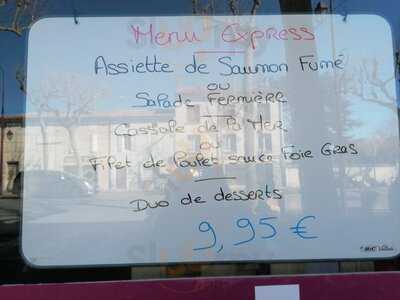 Menu Express
Assiette de Saumon Fumé
ou
Salade Fermière
Cassole de la Mer
ou
Filet de Poulet sauce Foie Gras
Duo de desserts
9,95 €